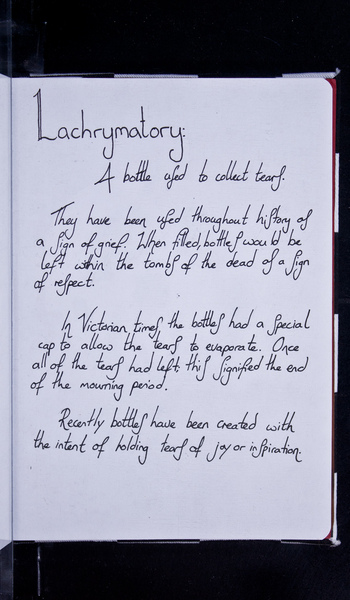 Lachrymatory:
A bottle uſed to collect tearſ.
They have been uſed throughout hiſtory aſ
a ſign of grief. When filled, bottleſ would be
left within the tombſ of the dead aſ a ſign
of reſpect.
In Victorian timeſ the bottleſ had a ſpecial
cap to allow the tearſ to evaporate. Once
all of the tearſ had left: thiſ ſignified the end
of the mourning period.
Recently bottleſ have been created with
the intent of holding tearſ of joy or inſpiration.